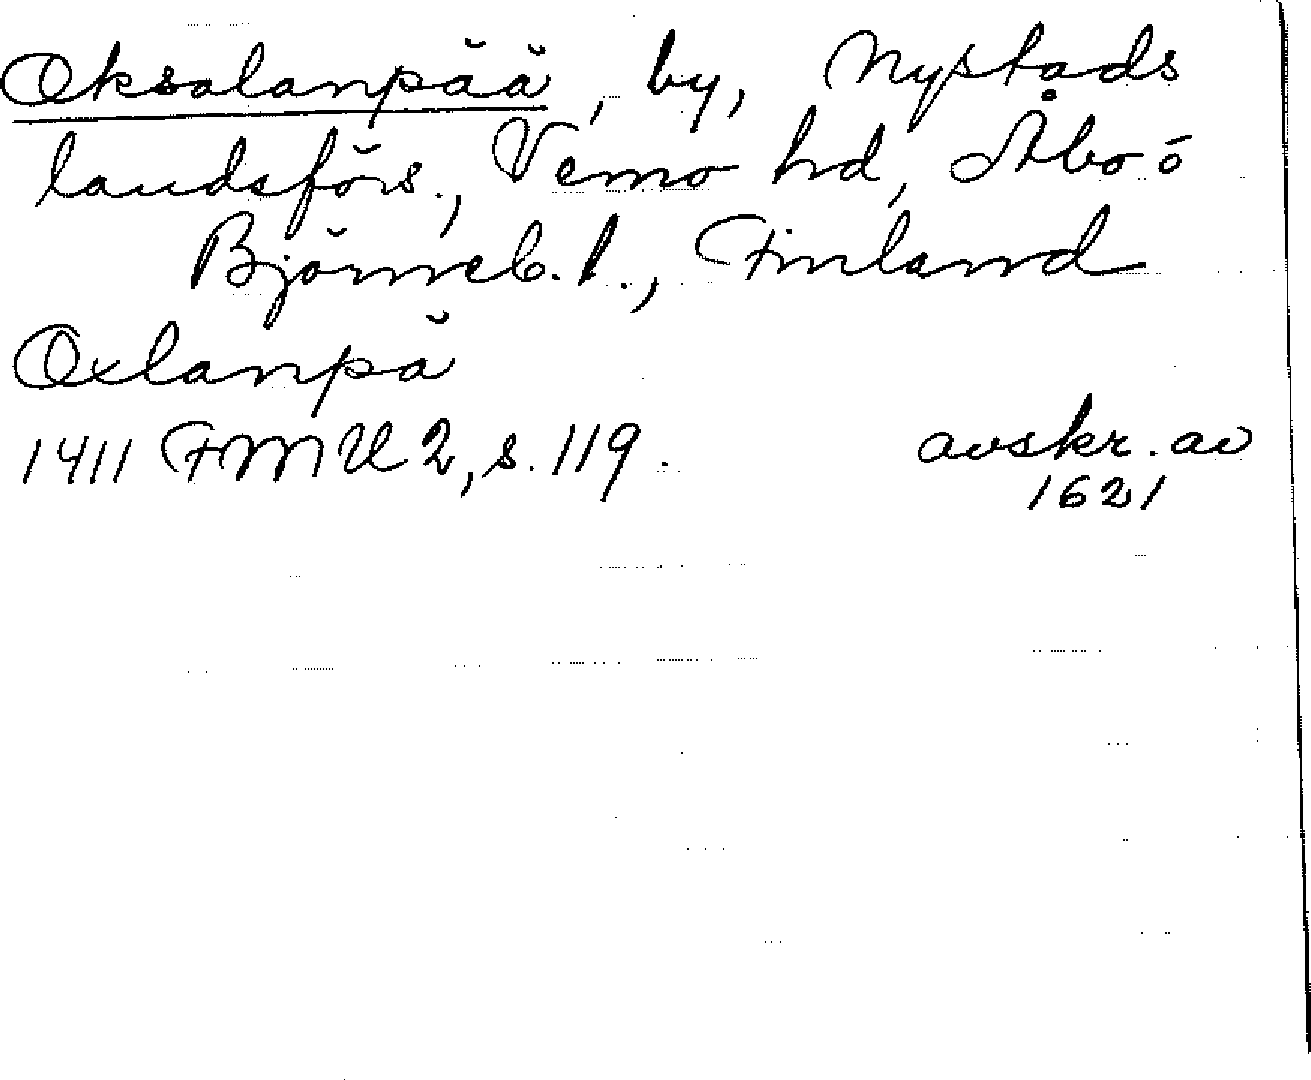 Oksalanpää, by, Nystads
landsförs., Vemo hd, Åbo o
Björneb. l., Finland
Oxlanpä
1411 FMU 2, s. 119.
avskr. av
1621